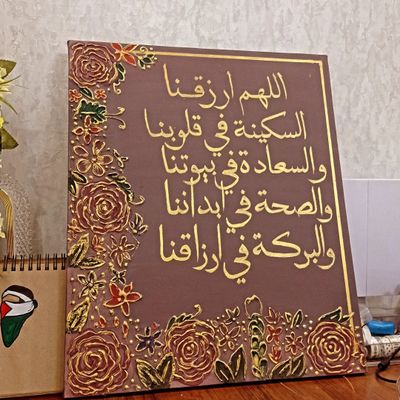 اللهم ارزقنا
السكينة في قلوبنا
والسعادة في بيوتنا
والصحة في أبداننا
والبركة في أرزاقنا